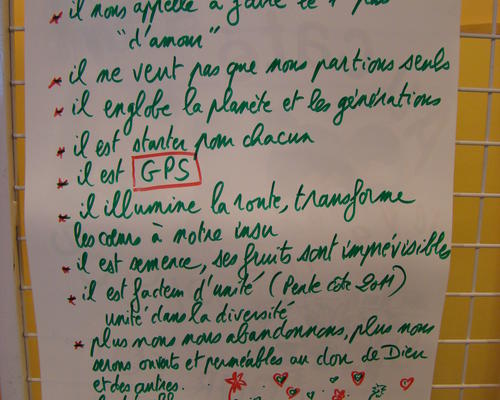 * il nous appelle à faire le 1er plus
"d'amour"
* il ne veut pas que nous partions seuls
* il englobe la planète et les générations
* il est starter pour chacun
* il est GPS
* il illumine la route, transforme
les cœurs à notre insu
* il est semence, ses fruits sont imprévisibles
* il est facteur d'unité (Pentecôte 2011)
unité dans la diversité
* plus nous nous abandonnons, plus nous
serons ouverts et perméables au don de Dieu
et des autres.